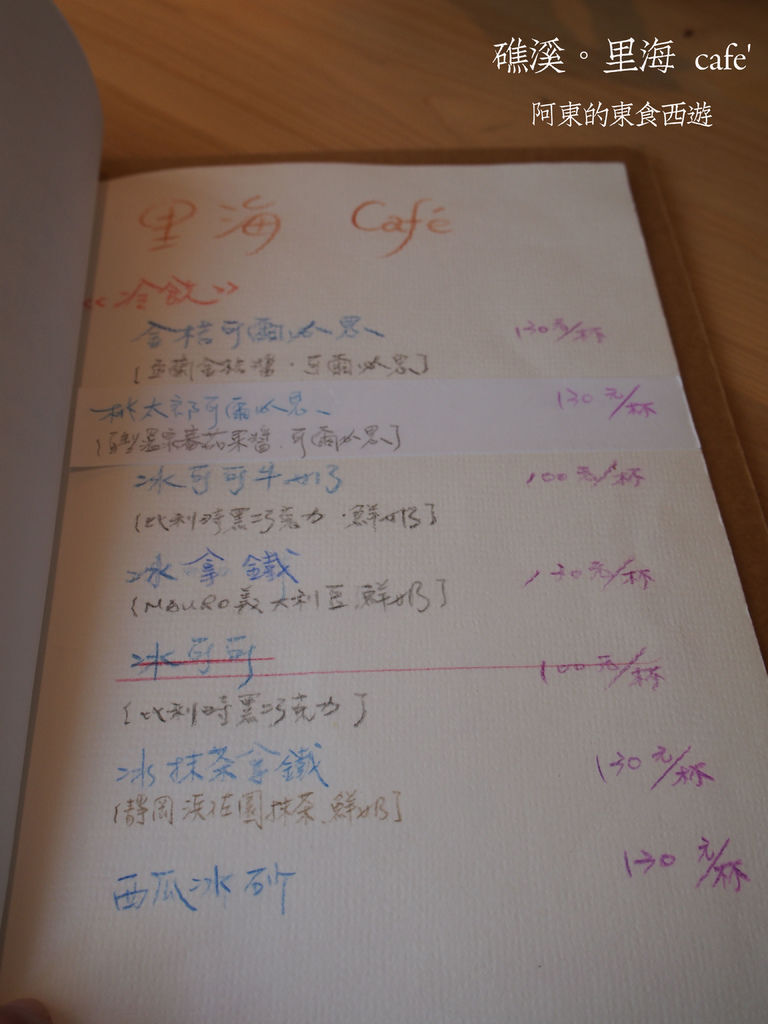 礁溪。里海 cafe'
阿東的東食西遊
里海 Café
《冷飲》
金桔可爾必思 130元/杯
(宜蘭金桔醬．可爾必思)
桃太郎可爾必思 130元/杯
番茄果醬．可爾必思)
冰可可牛奶 100元/杯
(比利時黑巧克力．鮮奶)
冰拿鐵 130元/杯
(MAURO義大利豆、鮮奶)
冰可可 100元/杯
(比利時黑巧克力)
冰抹茶拿鐵 130元/杯
(靜岡浜佐園抹茶、鮮奶)
西瓜冰砂 130元/杯